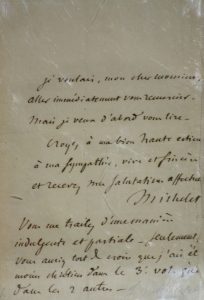 je voulais, mon cher monsieur,
aller immédiatement vous remercier.
Mais je veux d'abord vous lire.
Croyez à ma bien haute estime
à ma sympathie, vive et sincère
et recevez mes salutations affectueuses
Michelet
Vous me traitez d'une manière
indulgente et partiale. Seulement,
vous auriez tort de croire que j'ai été
moins chrétien dans le 3e vol. que
dans les 2 autres.